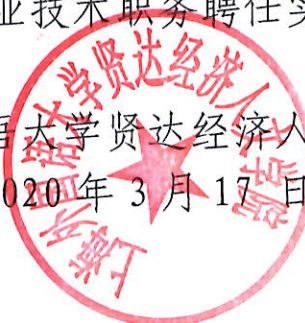 业技术职务聘任实
语大学贤达经济人
020年3月17日
上海外国语大学贤达经济人文学院